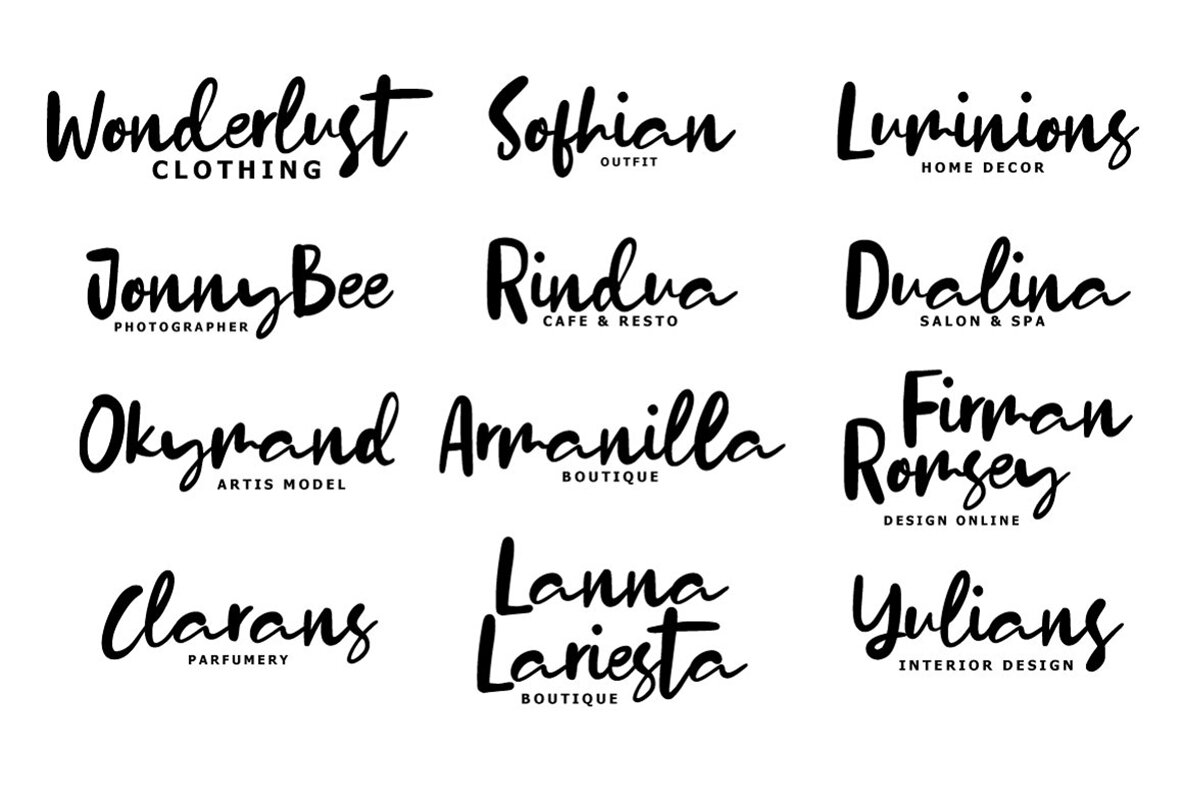 Wonderlust
CLOTHING
Sofhian
OUTFIT
Luminions
HOME DECOR
JonnyBee
PHOTOGRAPHER
Rindua
CAFE & RESTO
Dualina
SALON & SPA
Okymand
ARTIS MODEL
Armanilla
BOUTIQUE
Firman
Romsey
DESIGN ONLINE
Clarans
PARFUMERY
Lanna
Lariesta
BOUTIQUE
Yulians
INTERIOR DESIGN